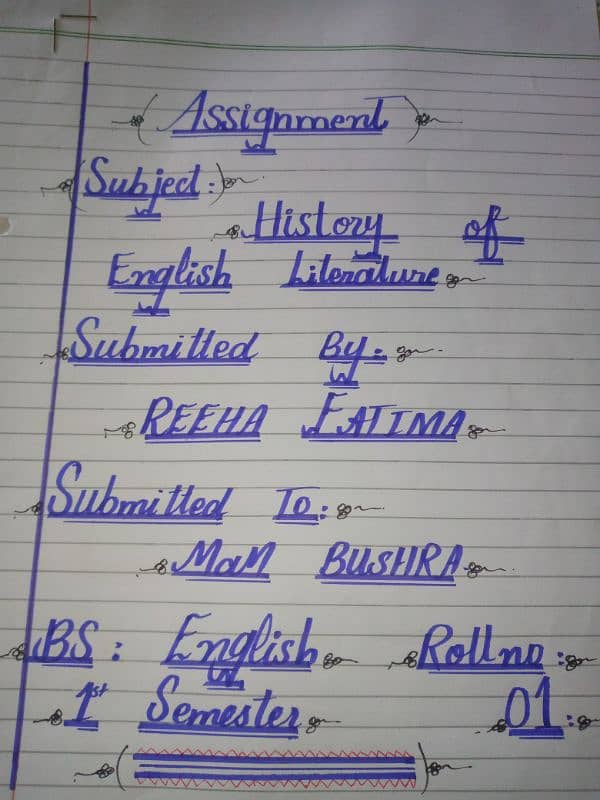 (Assignment)
(Subject:)
History of
English Literature
Submitted By:
REEHA FATIMA
Submitted To:
MaM BUSHRA
BS: English Rollno:
1st Semester 01: